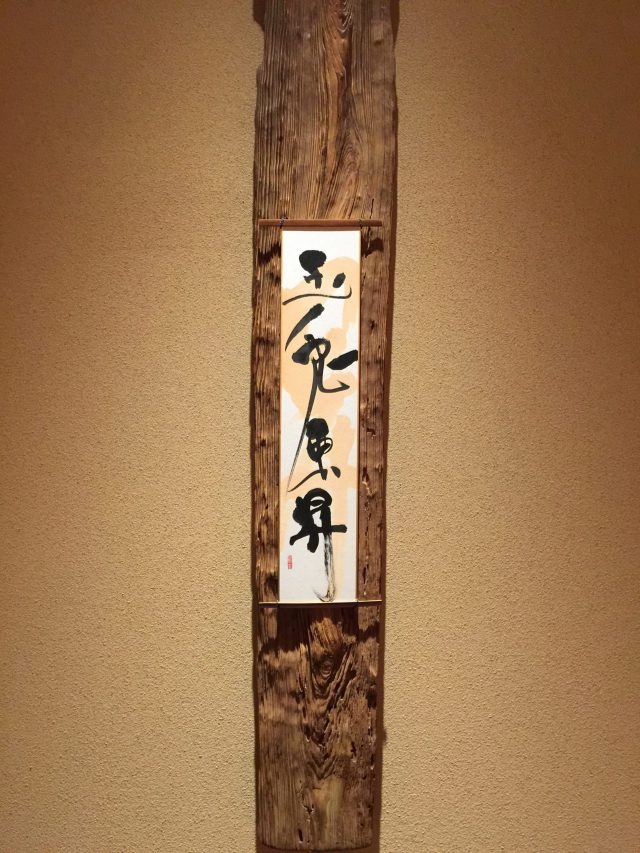 玉兎東昇